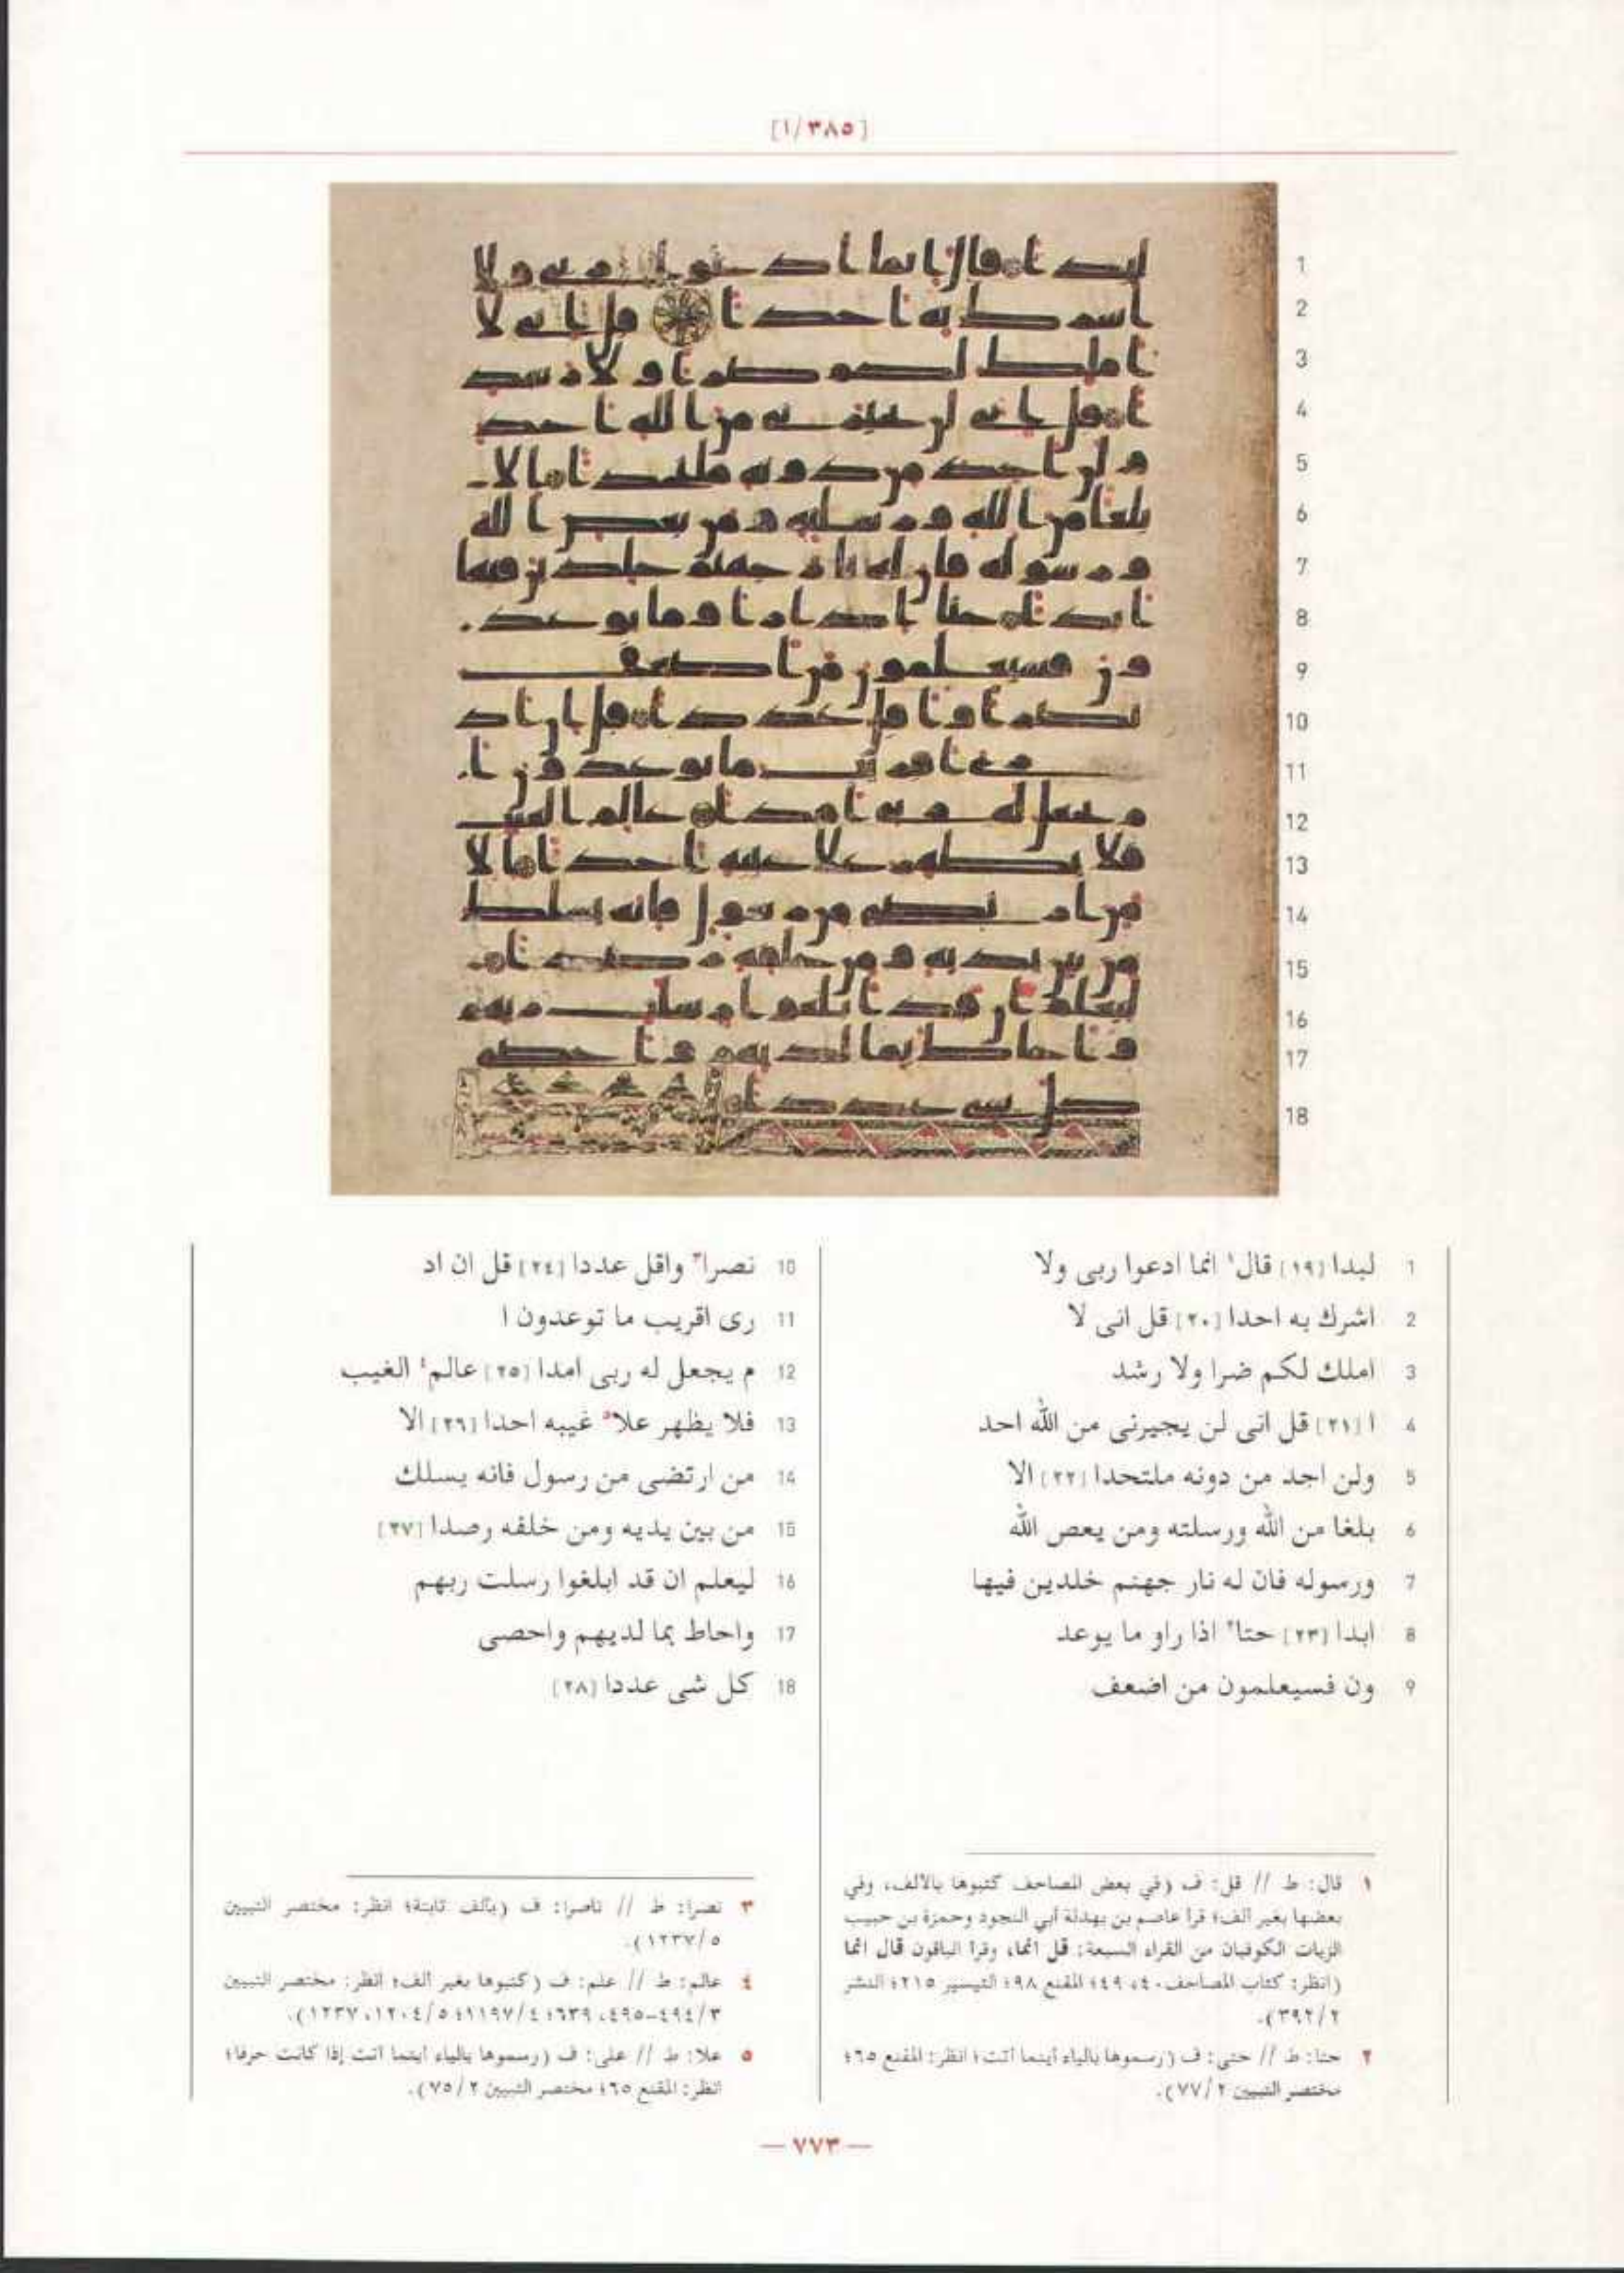 [٣٨٥/١]
1 لبدا [١٩] قال١ انما ادعوا ربى ولا
2 اشرك به احدا [٢٠] قل انى لا
3 املك لكم ضرا ولا رشد
4 ا [٢١] قل انى لن يجيرنى من الله احد
5 ولن اجد من دونه ملتحدا [٢٢] الا
6 بلغا من الله ورسلته ومن يعص الله
7 ورسوله فان له نار جهنم خلدين فيها
8 ابدا [٢٣] حتا٢ اذا راو ما يوعد
9 ون فسيعلمون من اضعف
10 نصرا٣ واقل عددا [٢٤] قل ان اد
11 رى اقريب ما توعدون ا
12 م يجعل له ربى امدا [٢٥] عالم٤ الغيب
13 فلا يظهر علا٥ غيبه احدا [٢٦] الا
14 من ارتضى من رسول فانه يسلك
15 من بين يديه ومن خلفه رصدا [٢٧]
16 ليعلم ان قد ابلغوا رسلت ربهم
17 واحاط بما لديهم واحصى
18 كل شى عددا [٢٨]
١ قال: ط // قل: ف (في بعض المصاحف كتبوها بالألف، وفي
بعضها بغير ألف؛ قرأ عاصم بن بهدلة أبي النجود وحمزة بن حبيب
الزيات الكوفيان من القراء السبعة: قل انما، وقرأ الباقون قال انما
(انظر: كتاب المصاحف ٤٠، ٤٩؛ المقنع ٩٨؛ التيسير ٢١٥؛ النشر
٣٩٢/٢).
٢ حتا: ط // حتى: ف (رسموها بالياء أينما أتت؛ انظر: المقنع ٦٥؛
مختصر التبيين ٧٧/٢).
٣ نصرا: ط // ناصرا: ف (بألف ثابتة؛ انظر: مختصر التبيين
١٢٣٧/٥).
٤ عالم: ط // علم: ف (كتبوها بغير ألف؛ انظر: مختصر التبيين
٤٩٤/٣-٤٩٥، ٦٣٩؛ ١١٩٧/٤؛ ١٢٠٤/٥، ١٢٣٧).
٥ علا: ط // على: ف (رسموها بالياء أينما أتت إذا كانت حرفا؛
انظر: المقنع ٦٥؛ مختصر التبيين ٧٥/٢).
— ٧٧٣ —